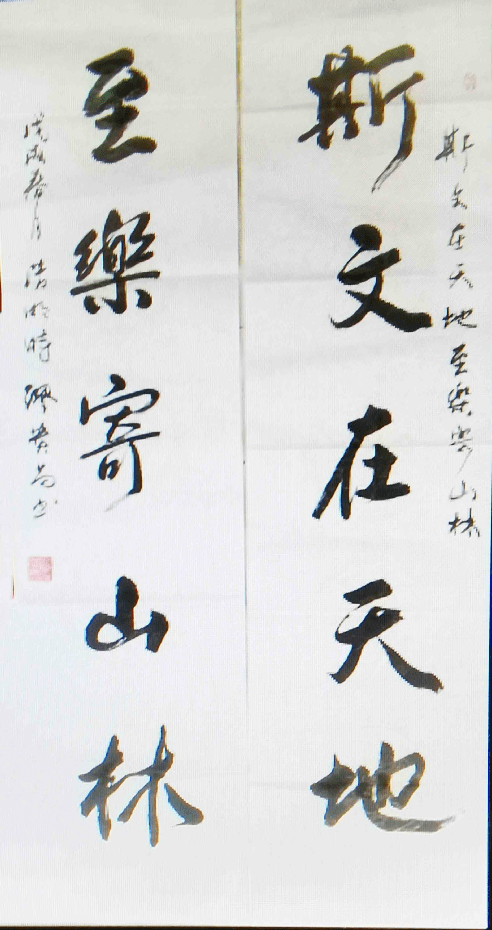 斯文在天地至樂寄山林
斯文在天地
至樂寄山林
戊戌春月